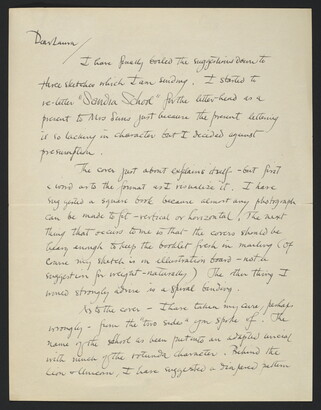 Dear Laura/
I have finally boiled the suggestions down to
three sketches which I am sending. I started to
re-letter "Dandria School" for the letter-head as a
present to Mrs Sims just because the present lettering
is so lacking in character but I decided against
presumption.
The cover just about explains itself - but first
a word as to the format as I visualize it. I have
suggested a square book because almost any photograph
can be made to fit - vertical or horizontal. The next
thing that occurs to me is that the covers should be
heavy enough to keep the booklet fresh in mailing (of
course my sketch is on illustration board - not a
suggestion for weight - naturally) The other thing I
would strongly advise is a spiral binding.
As to the cover - I have taken my cue, perhaps
wrongly - from the "two sides" you spoke of. The
name of the school has been put into an adapted uncial
with much of the rotunda character. Behind the
, I have suggested a diapered pattern